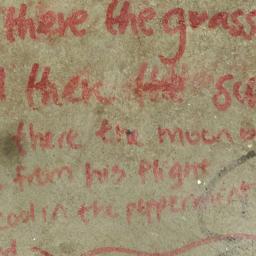 there the grass
then the su
there the moon
from his flight
cool in the peppermint